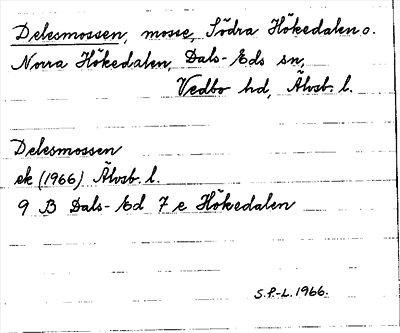 Delesmossen, mosse, Södra Hökedalen o.
Norra Hökedalen, Dals-Eds sn,
Vedbo hd, Älvsb. l.
Delesmossen
ek (1966) Älvsb. l.
9 B Dals-Ed 7 e Hökedalen
S.P.-L. 1966.